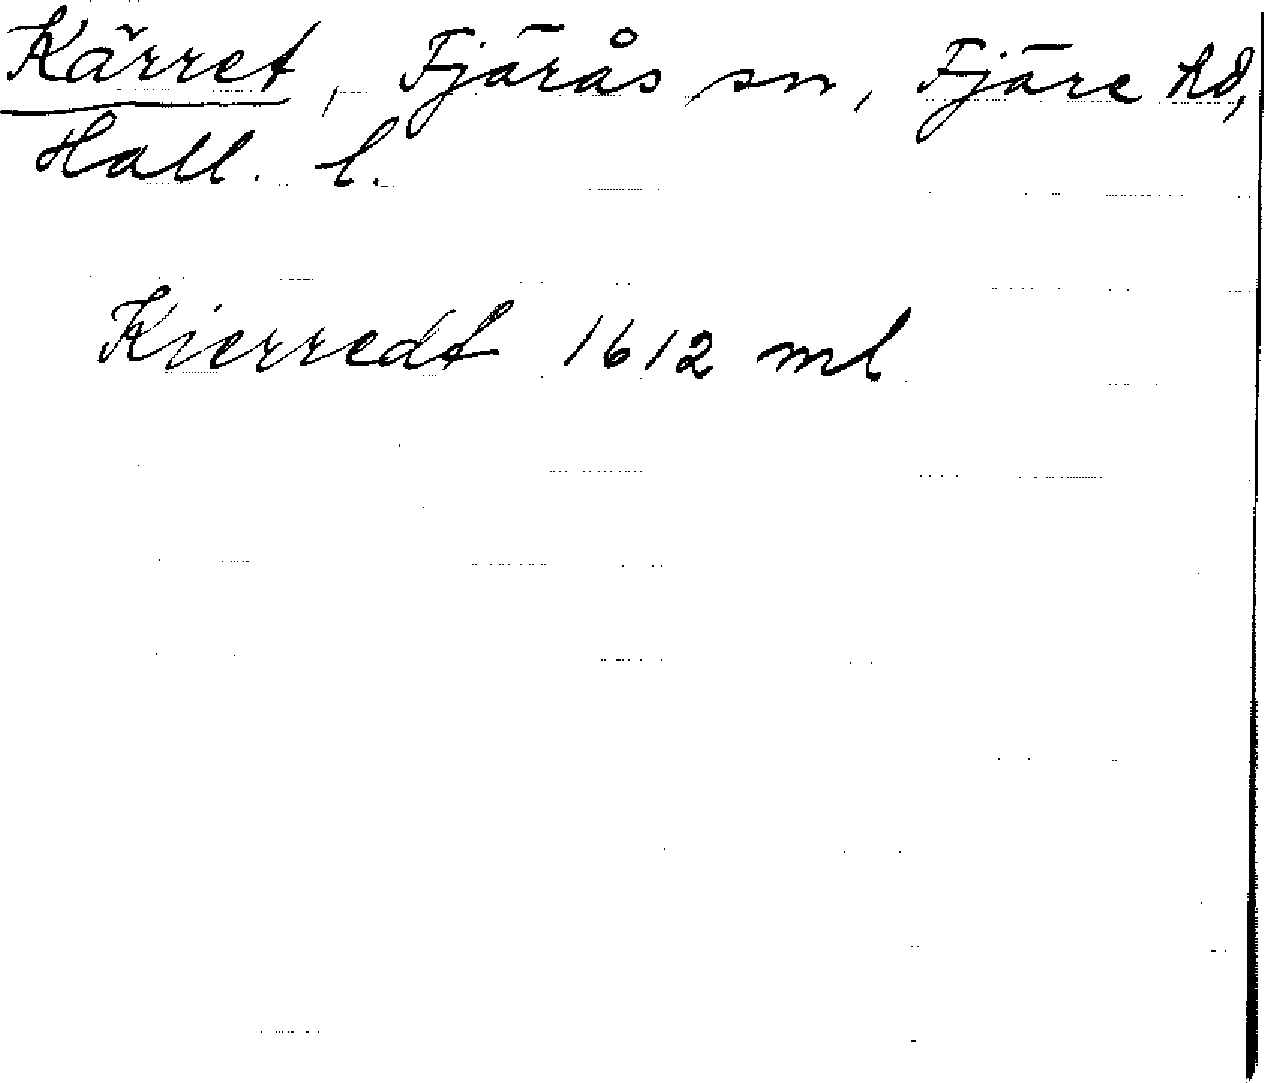 Kärret, Fjärås sn, Fjäre hd,
Hall. l.
Kierredt 1612 ml